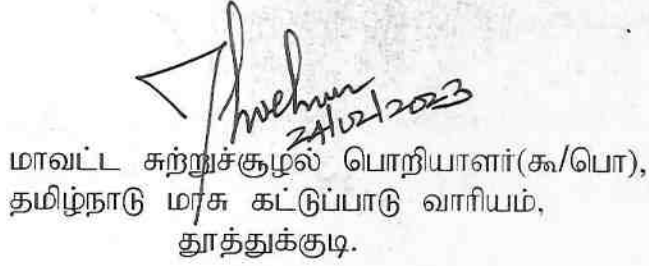 24/02/2023
மாவட்ட சுற்றுச்சூழல் பொறியாளர்(கூ/பொ),
தமிழ்நாடு மாசு கட்டுப்பாடு வாரியம்,
தூத்துக்குடி.